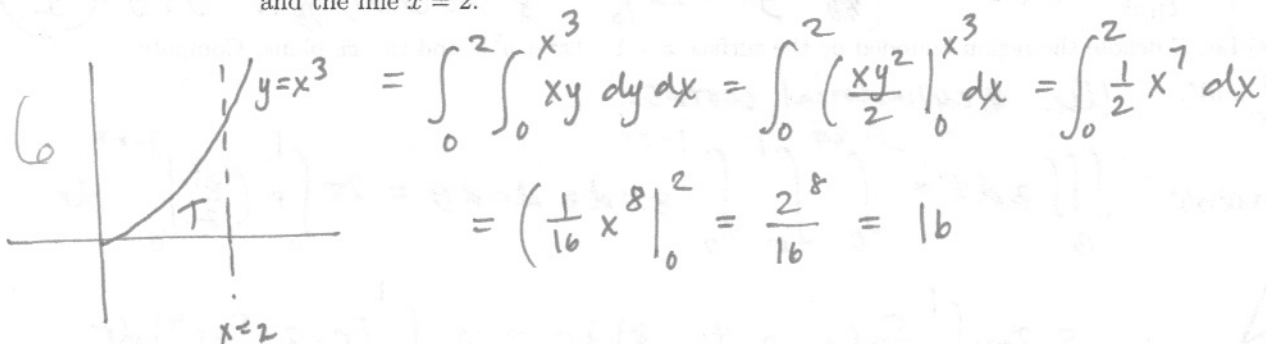 and the line x = 2.
6
y=x³
T
x=2
= ∫₀² ∫₀^x³ xy dy dx = ∫₀² ( xy²/2 |₀^x³ dx = ∫₀² 1/2 x⁷ dx
= ( 1/16 x⁸ |₀² = 2⁸/16 = 16